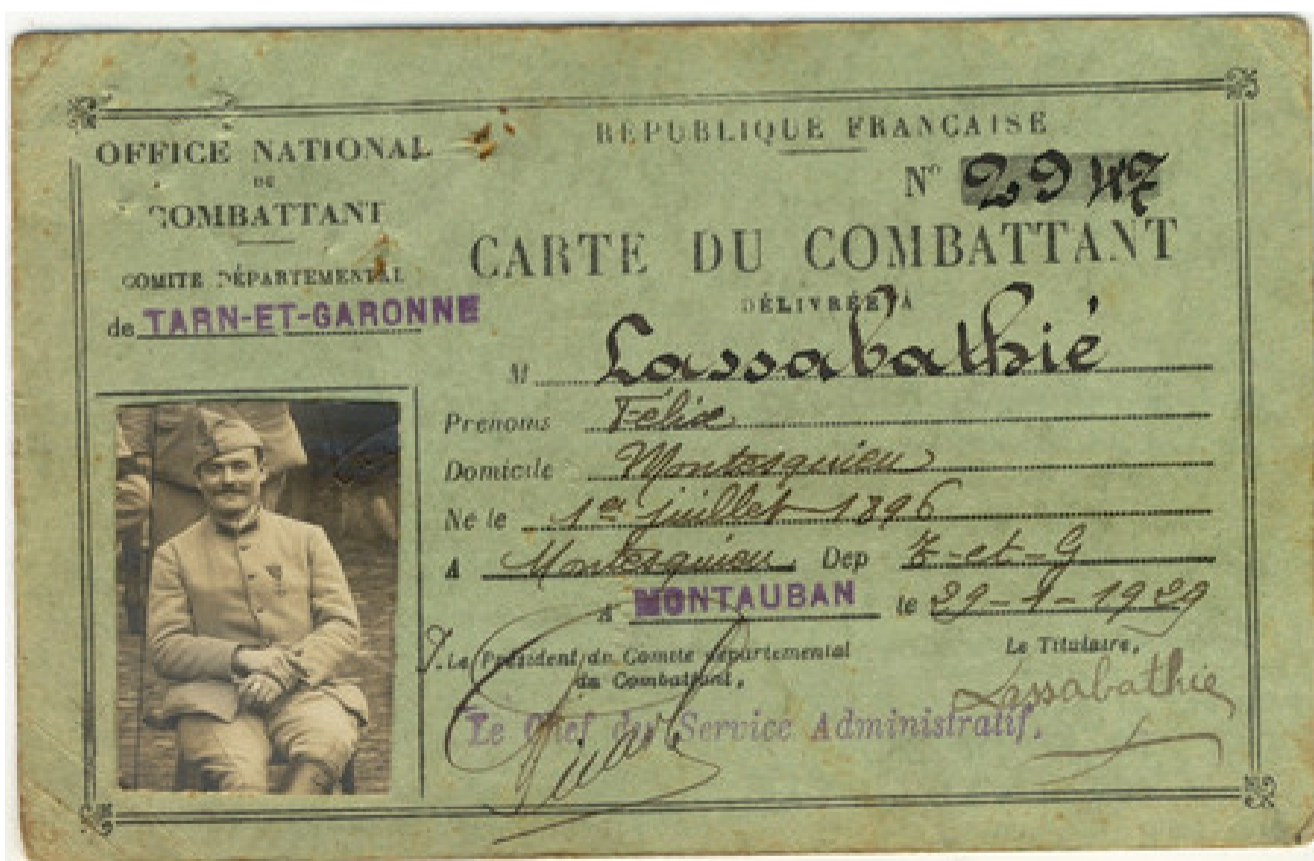 OFFICE NATIONAL
DU
COMBATTANT
COMITE DÉPARTEMENTAL
de TARN-ET-GARONNE
REPUBLIQUE FRANÇAISE
N° 2947
CARTE DU COMBATTANT
DÉLIVRÉE À
M Lassabathié
Prénoms Félix
Domicile Montesquieu
Né le 1er juillet 1896
A Montesquieu Dep T-et-G
A MONTAUBAN le 29-1-1929
Le Président du Comité départemental
du Combattant,
Le Chef du Service Administratif,
Le Titulaire,
Lassabathie